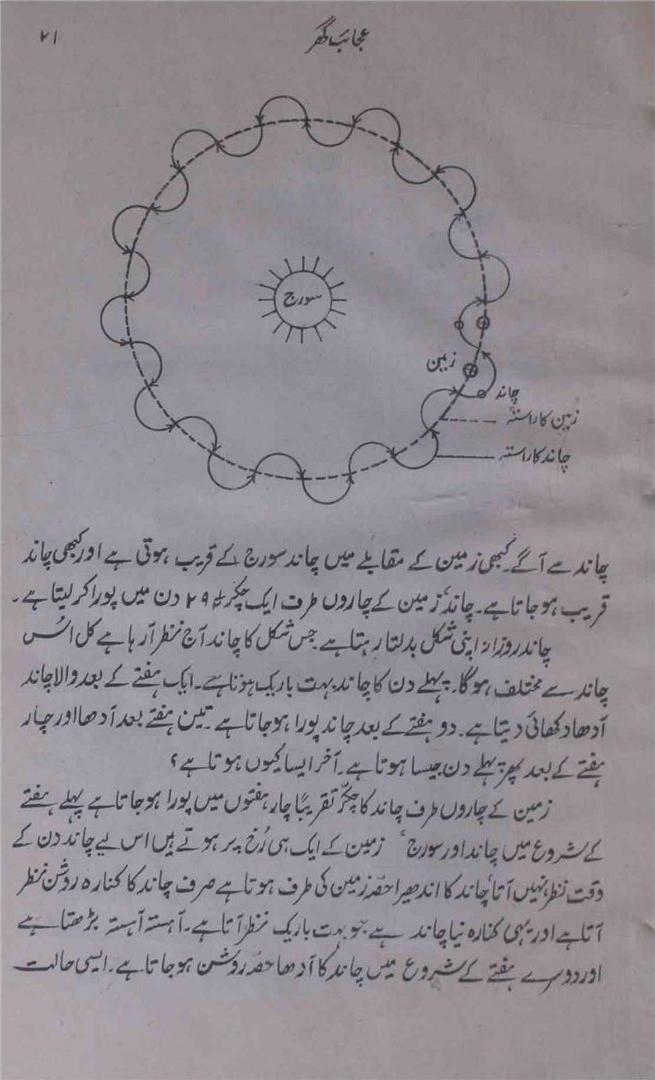 عجائب گھر
۲۱
سورج
زمین
چاند
زمین کا راستہ
چاند کا راستہ
چاند سے آگے۔ کبھی زمین کے مقابلے میں چاند سورج کے قریب ہوتی ہے اور کبھی چاند
قریب ہو جاتا ہے۔ چاند، زمین کے چاروں طرف ایک چکر ۲۹½ دن میں پورا کر لیتا ہے۔
چاند روزانہ اپنی شکل بدلتا رہتا ہے جس شکل کا چاند آج نظر آرہا ہے کل اُس
چاند سے مختلف ہو گا۔ پہلے دن کا چاند بہت باریک ہوتا ہے۔ ایک ہفتے کے بعد والا چاند
آدھا دکھائی دیتا ہے۔ دو ہفتے کے بعد چاند پورا ہو جاتا ہے۔ تین ہفتے بعد آدھا اور چار
ہفتے کے بعد پھر پہلے دن جیسا ہوتا ہے۔ آخر ایسا کیوں ہوتا ہے؟
زمین کے چاروں طرف چاند کا چکّر تقریباً چار ہفتوں میں پورا ہو جاتا ہے پہلے ہفتے
کے شروع میں چاند اور سورج، زمین کے ایک ہی رُخ پر ہوتے ہیں اس لیے چاند دن کے
وقت نظر نہیں آتا، چاند کا اندھیرا حصّہ زمین کی طرف ہوتا ہے صرف چاند کا کنارہ روشن نظر
آتا ہے اور یہی کنارہ نیا چاند ہے جو بہت باریک نظر آتا ہے۔ آہستہ آہستہ بڑھتا ہے
اور دوسرے ہفتے کے شروع میں چاند کا آدھا حصّہ روشن ہو جاتا ہے۔ ایسی حالت